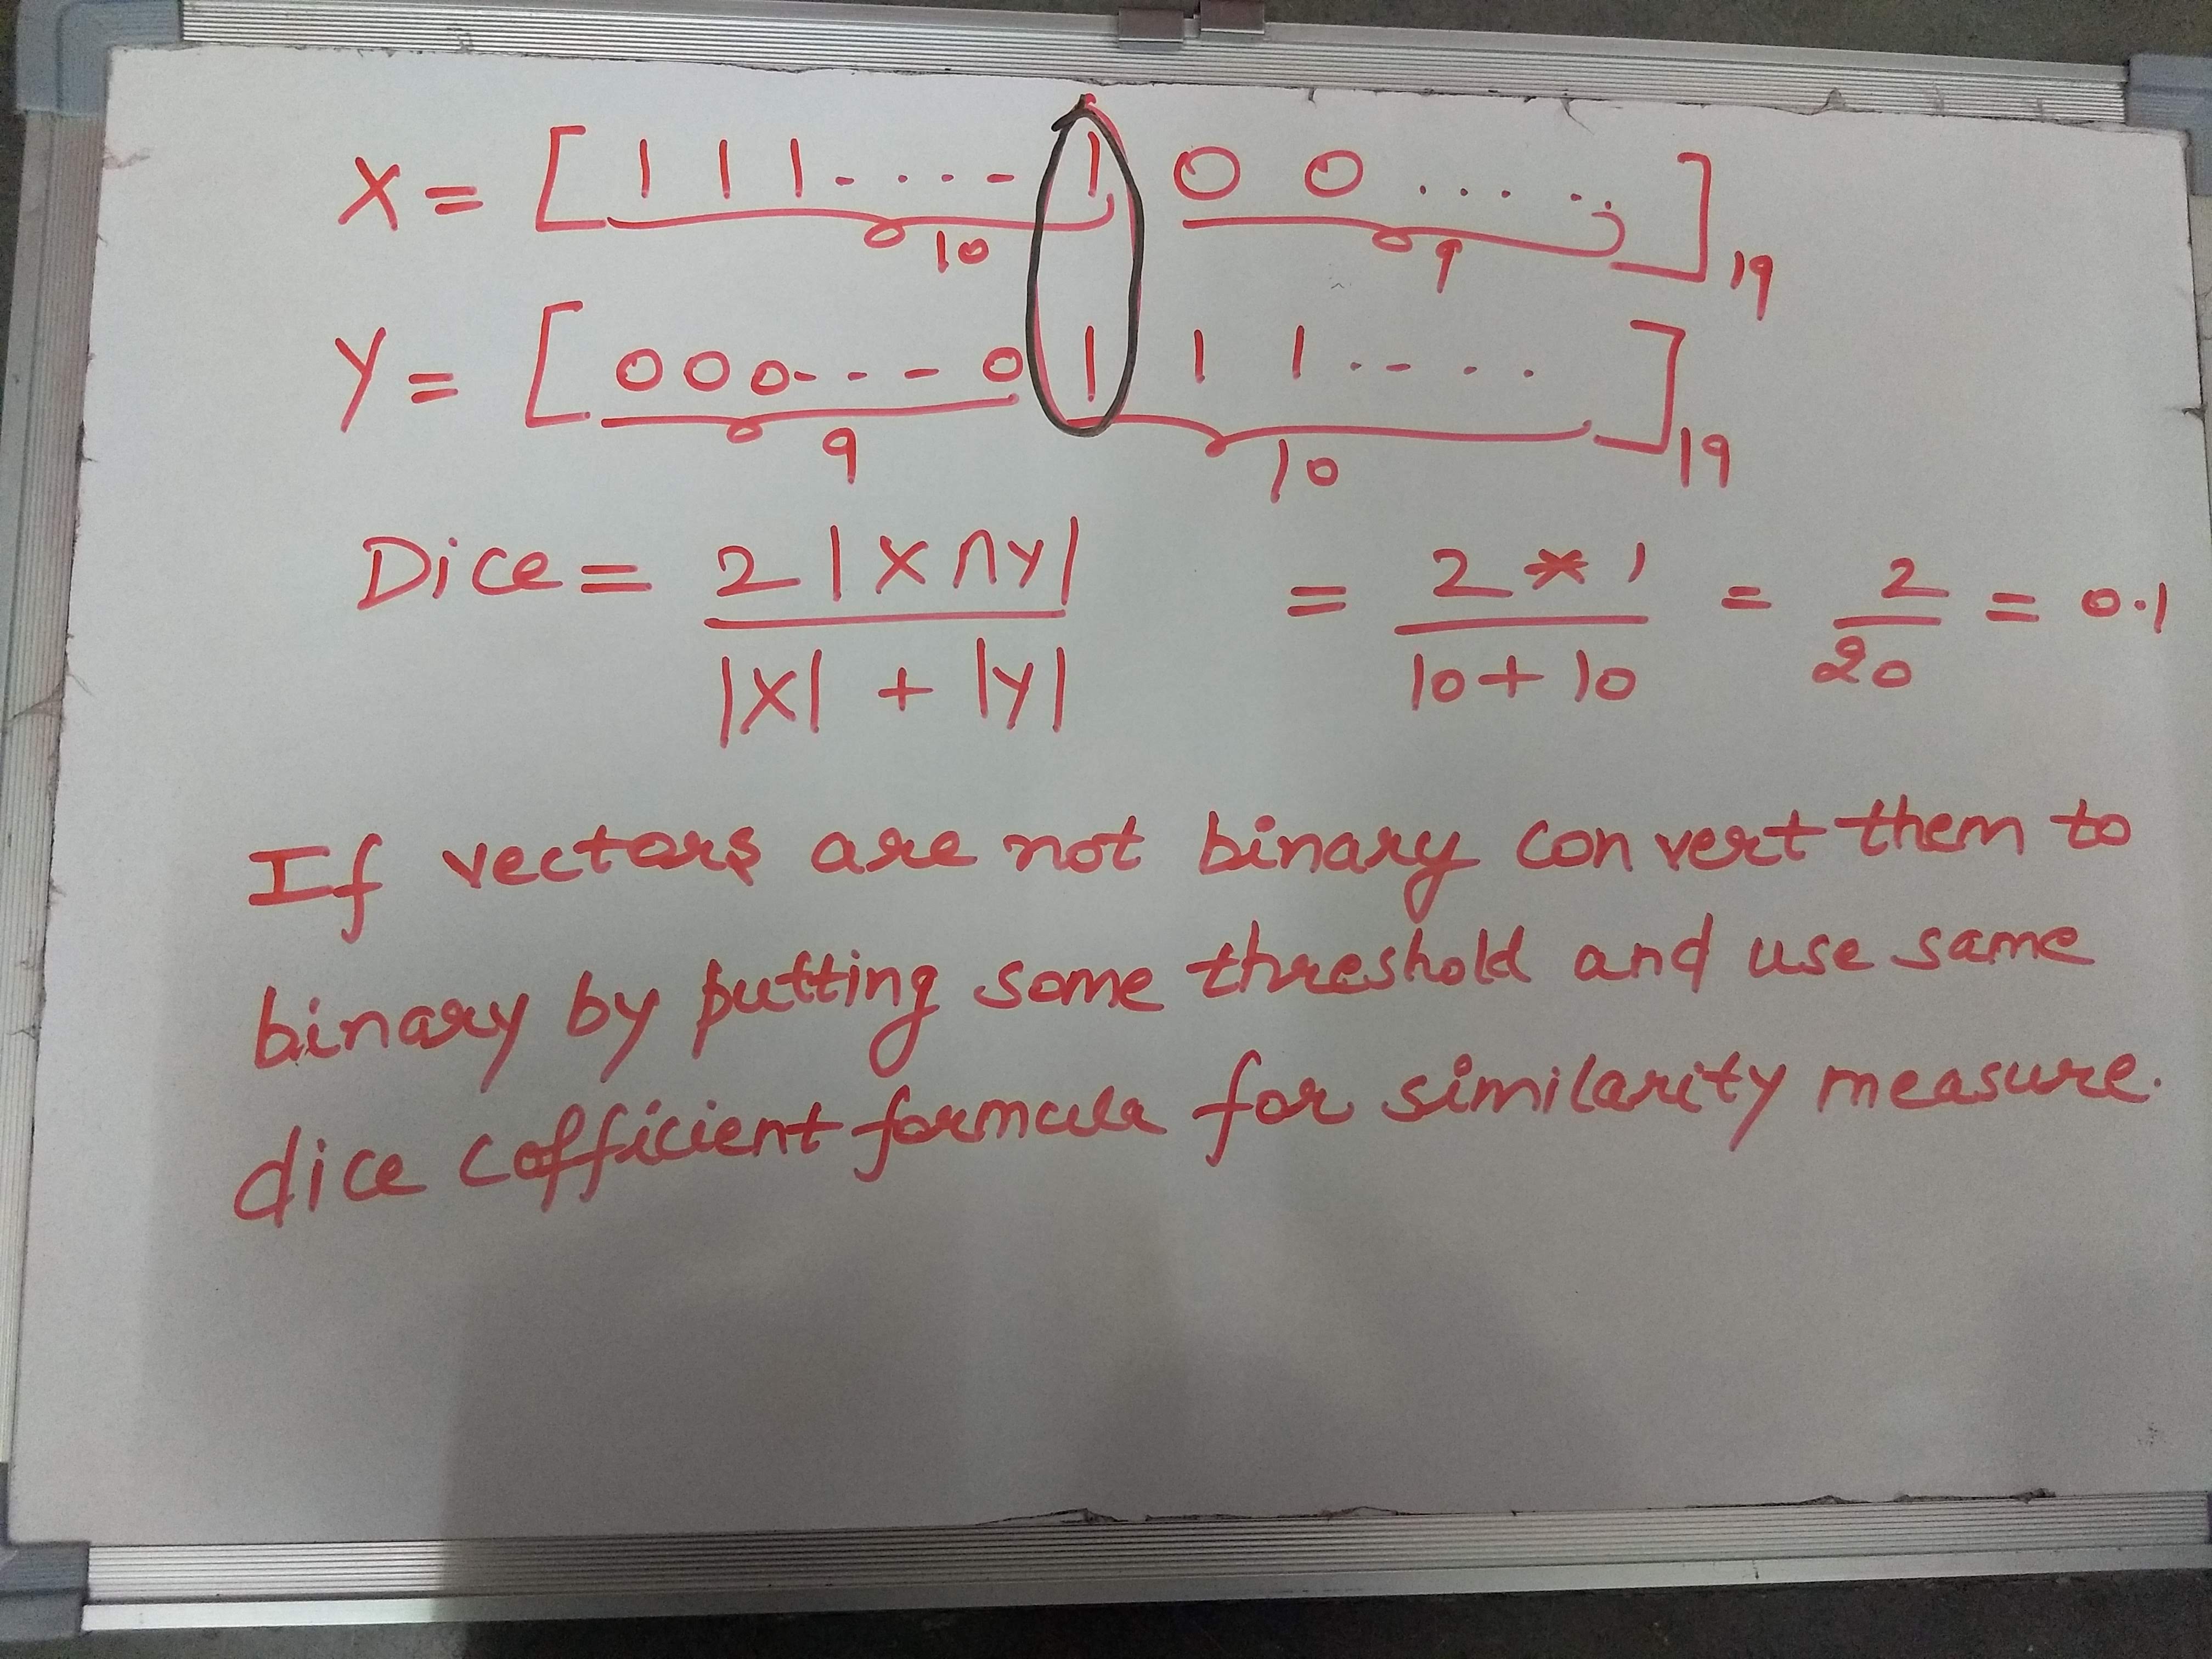 X = [ 1 1 1 - . . . - 1 0 0 . . . . . . ] 19
10 9
Y = [ 0 0 0 - - - - 0 1 1 1 . - . . . ] 19
9 10
Dice = 2 |X ∩ Y| / |X| + |Y| = 2 * 1 / 10 + 10 = 2 / 20 = 0.1
If vectors are not binary convert them to
binary by putting some threshold and use same
dice cofficient formula for similarity measure.